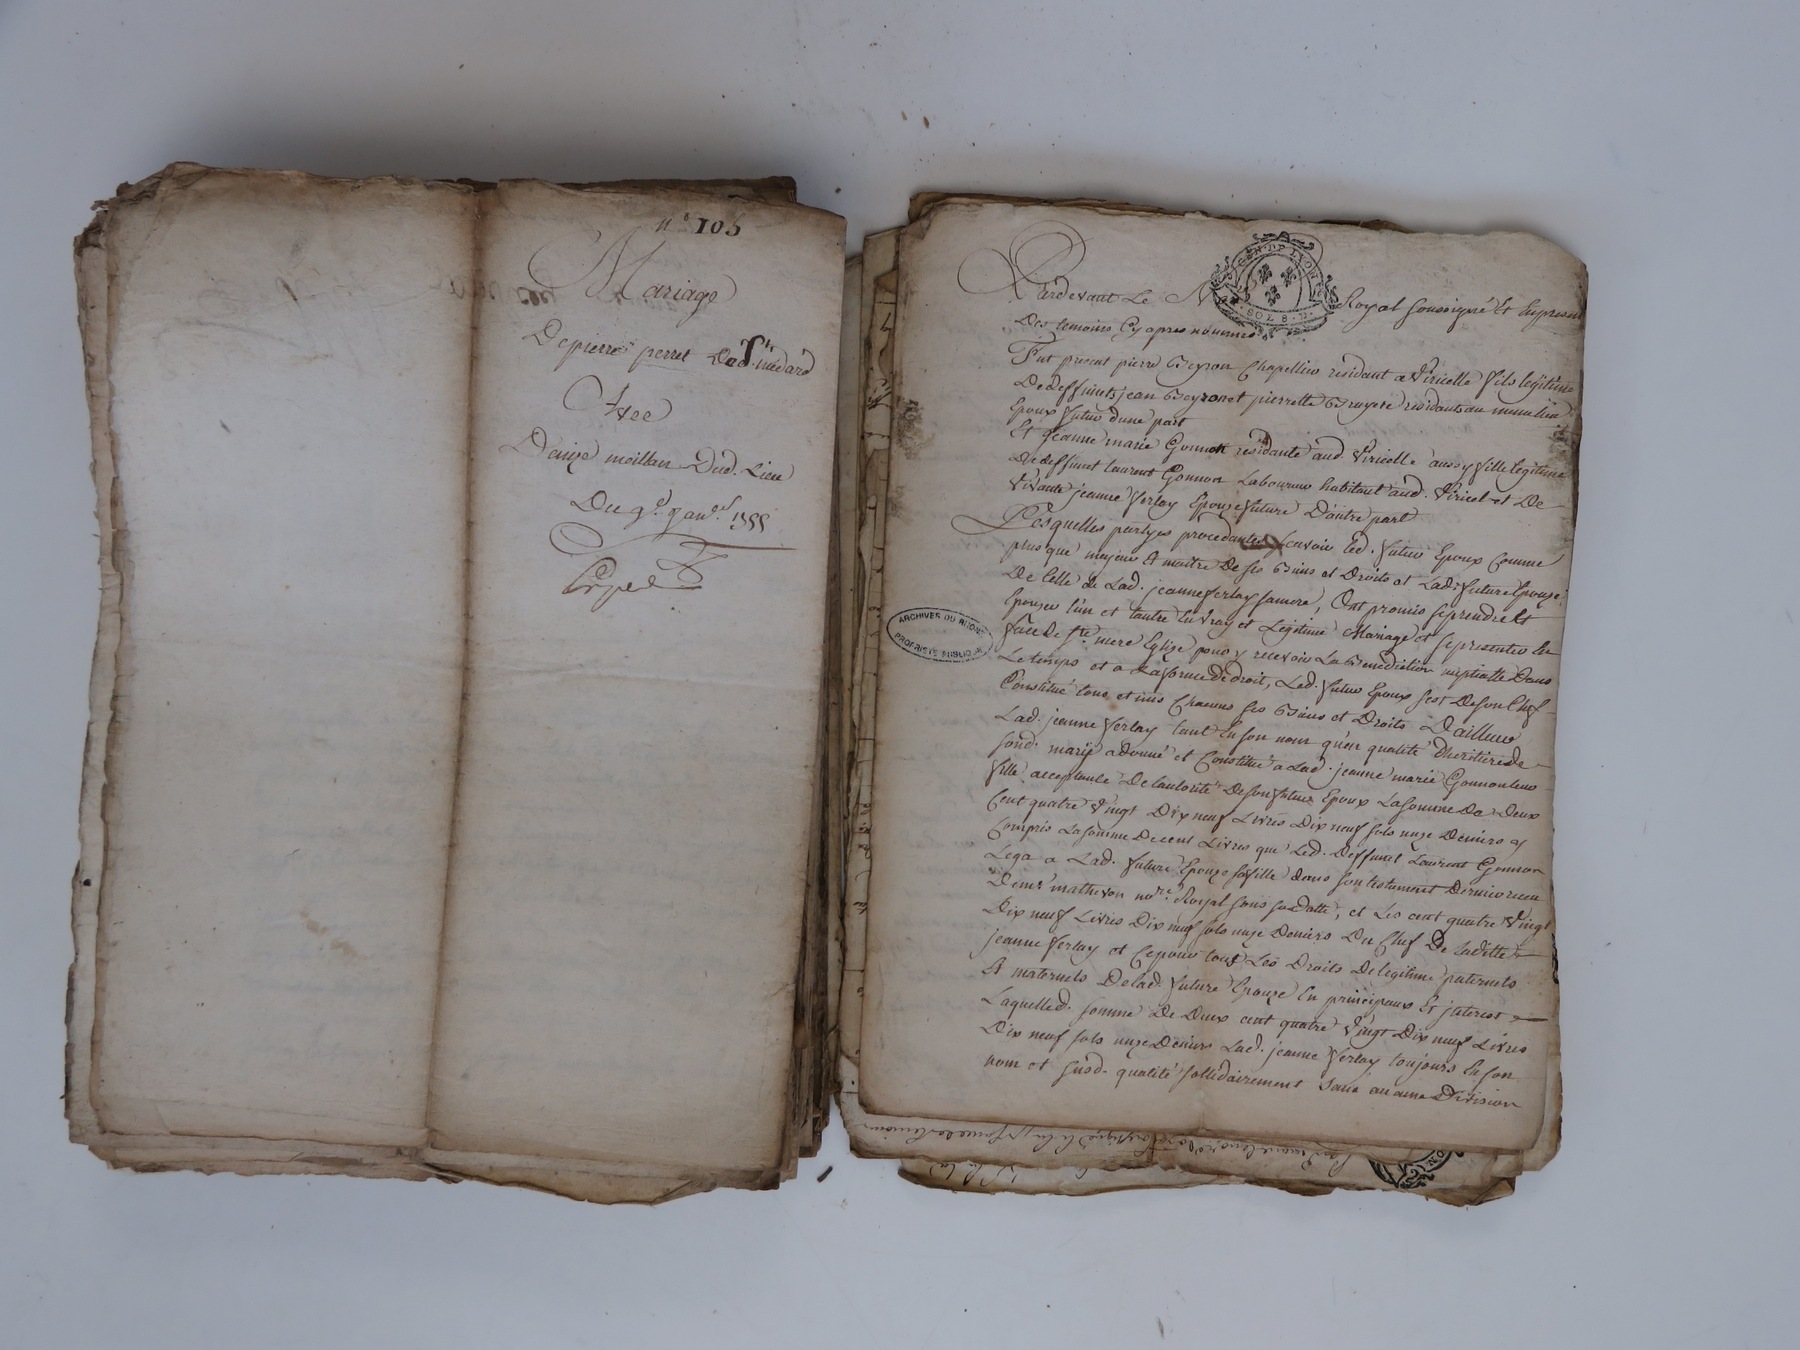 n° 105
Mariage
De pierre perret De St. médard
Avec
Denize meillan Dud. Lieu
Du 9e. Janv. 1755
GEN. DE LYON
SOLS 8. D.
Pardevant Le Royal soussigné Et En presence
Des temoins Cy apres nommés
Fut present pierre Beyron Chapellier residant a Viricelle fils legitime
De deffunts jean Beyron et pierrette Bruyere residants au meme lieu
Epoux futur dune part
Et Jeanne marie Gonnon residante aud. Viricelle aussy fille legitime
De deffunt laurent Gonnon Laboureur habitant aud. Viricel et De
Vivante jeanne Verlay Epouze future D'autre part
Lesquelles partyes procedantes scavoir led. futur Epoux Comme
plus que majeur et maitre De ses Biens et Droits et Lad. future Epouze
De Celle de Lad. jeanne Verlay sa mere, Ont promis se prendre et
Epouzer l'un et l'autre En Vray et Legitime Mariage et se presenter En
face De Ste. mere Eglize pour y recevoir La Benediction nuptialle Dans
Le temps et a La forme De droit, Led. futur Epoux s'est De son Chef
Constitué tous et uns Chacuns ses Biens et Droits D'ailleurs
Lad. jeanne Verlay tant En son nom qu'en qualité D'heritiere de
sond. mary a donné et Constitué a Lad. jeanne marie Gonnon leur
fille acceptante De l'autorité De son futur Epoux La somme De Deux
Cent quatre Vingt Dix neuf Livres Dix neuf sols onze Deniers y
Compris La somme De cent Livres que Led. Deffunt Laurent Gonnon
Lega a Lad. future Epouze sa fille dans son testament Dernier receu
De me. mathevon nore. Royal sous sa Datte, et Les cent quatre Vingt
Dix neuf Livres Dix neuf sols onze Deniers Du Chef De Laditte
jeanne Verlay et Ce pour tous Les Droits De legitime paternels
Et maternels De lad. future Epouze En principaux Et jnterest
Laquelle d. somme De Deux cent quatre Vingt Dix neuf Livres
Dix neuf sols onze Deniers Lad. jeanne Verlay toujours En son
nom et susd. qualité sollidairement sans aucune Division
ARCHIVES DU RHONE
PROPRIETE PUBLIQUE